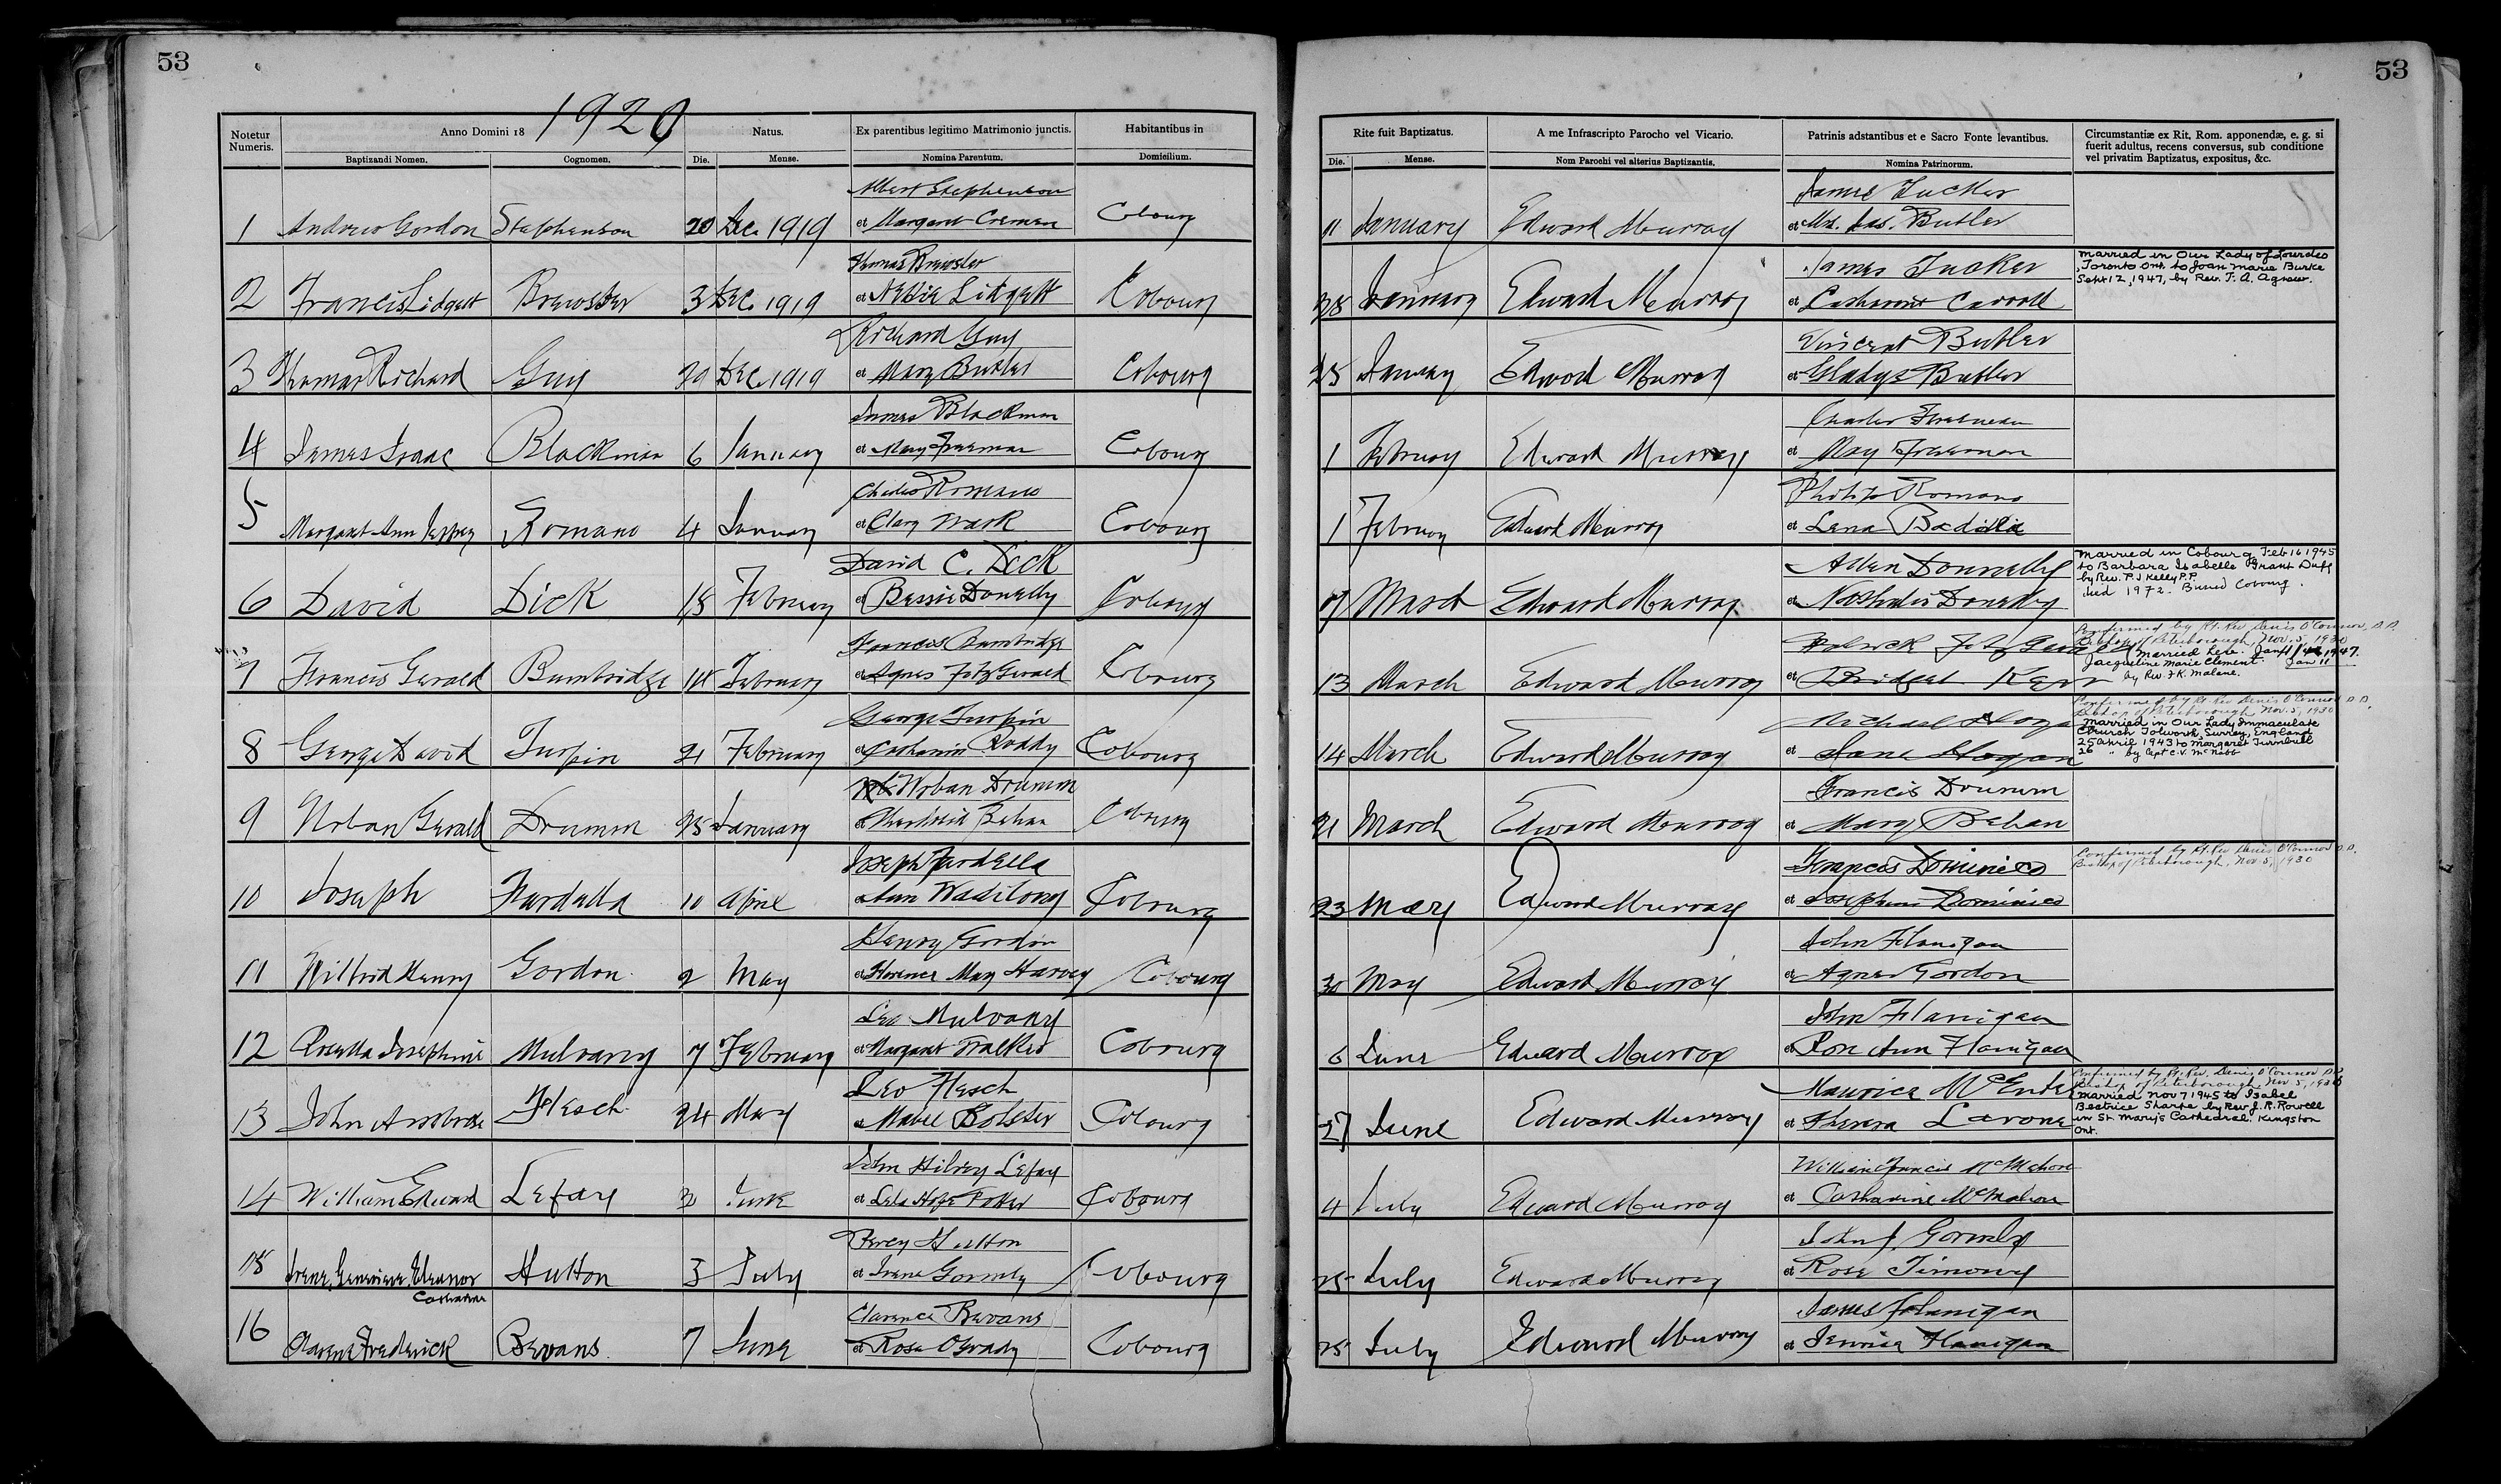 53
53
1920
Notetur Numeris.
Anno Domini 18
Baptizandi Nomen.
Cognomen.
Natus.
Die.
Mense.
Ex parentibus legitimo Matrimonio junctis.
Nomina Parentum.
Habitantibus in
Domicilium.
Rite fuit Baptizatus.
Die.
Mense.
A me Infrascripto Parocho vel Vicario.
Nom Parochi vel alterius Baptizantis.
Patrinis adstantibus et e Sacro Fonte levantibus.
Nomina Patrinorum.
Circumstantiæ ex Rit, Rom. apponendæ, e. g. si
fuerit adultus, recens conversus, sub conditione
vel privatim Baptizatus, expositus, &c.
Albert Stephenson
1 Andrew Gordon Stephenson 20 Dec. 1919 et Margaret Cobourg
James Tucker
11 January Edward Murray et Mrs. Jas. Butler
Thomas Brewster
2 Francis Lidgett Brewster 3 Dec 1919 et Nellie Lidgett Cobourg
James Tucker
January Edward Murray et Catharine Carroll
Married in Our Lady of Lourdes
Toronto Ont. to Joan Marie Burke
Sept 12, 1947, by Rev. F. A. Agnew.
Richard Guy
3 Thomas Richard Guy 29 Dec 1919 et Mary Butler Cobourg
Vincent Butler
25 January Edward Murray et Gladys Butler
James Blackman
4 James Isaac Blackman 6 January et Mary Freeman Cobourg
Charles
1 February Edward Murray et May Freeman
Charles Romano
5 Margaret Ann Romano 4 January et Clara Cobourg
Philip Romano
1 February Edward Murray et Lena
David C. Dick
6 David Dick 18 February et Bessie Donelly Cobourg
Allen Donnelly
March Edward Murray et
Married in Cobourg Feb 16 1945
to Barbara Isabelle Grant Duff
by Rev. P. J Kelly P.P.
died 1972. Buried Cobourg.
Francis Bumbridge
7 Francis Gerald Bumbridge 14 February et Agnes FitzGerald Cobourg
Patrick FitzGerald
13 March Edward Murray et Bridget Kerr
Confirmed by Rt. Rev Denis O'Connor, D.D.
Bishop of Peterborough, Nov. 5, 1930
Married here. Jan 11 1947.
Jacqueline Marie Clement. Jan 11
by Rev. F.K. Malane.
George Turpin
8 George David Turpin 21 February et Catharine Roddy Cobourg
Michael Hogan
14 March Edward Murray et Jane Hogan
Confirmed by Rt. Rev Denis O'Connor D.D.
Bishop of Peterborough, Nov. 5, 1930
Married in Our Lady Immaculate
Church Tolworth, Surrey, England
25 April 1943 to Margaret Turnbull
26 " by Capt C.V. McNabb
Urban Drumm
9 Urban Gerald Drumm 25 January et Behan Cobourg
Francis Drumm
21 March Edward Murray et Mary Behan
Joseph Fardella
10 Joseph Fardella 10 April et Ann Cobourg
Francis Dominico
23 May Edward Murray et Josephine Dominico
Confirmed by Rt. Rev Denis O'Connor D.D.
Bishop of Peterborough, Nov. 5, 1930
Henry Gordon
11 Wilfrid Henry Gordon 2 May et Florence May Harvey Cobourg
John Flanigan
30 May Edward Murray et Agnes Gordon
Leo Mulvany
12 Josephine Mulvany 7 February et Margaret Walker Cobourg
John Flanigan
6 June Edward Murray et Rose Ann Flanigan
Leo Flesch
13 John Ambrose Flesch 24 May et Mabel Bolster Cobourg
Maurice
27 June Edward Murray et Theresa
Confirmed by Rt. Rev. Denis O'Connor D.D.
Bishop of Peterborough, Nov 5, 1930
Married Nov 7 1945 to Isabel
Beatrice Sharpe by Rev J. R. Rowell
in St. Mary's Cathedral. Kingston
Ont.
John Lefay
14 William Edward Lefay June et Cobourg
William Francis McMahon
4 July Edward Murray et Catharine McMahon
Percy Hutton
15 Irene, Genevieve, Eleanor Hutton 3 July et Irene Gormly Cobourg
Catharine
John J. Gormly
25 July Edward Murray et Rose Timony
Clarence Bevans
16 Clarence Frederick Bevans 7 June et Rose O'Grady Cobourg
James Flanigan
25 July Edward Murray et Flanigan